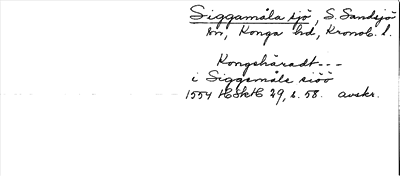 Siggamåla sjö, S. Sandsjö
sn, Konga hd, Kronob. l.
Kongshäradt---
i Siggemåle siöö
1554 HSkH 29, s. 58. avskr.